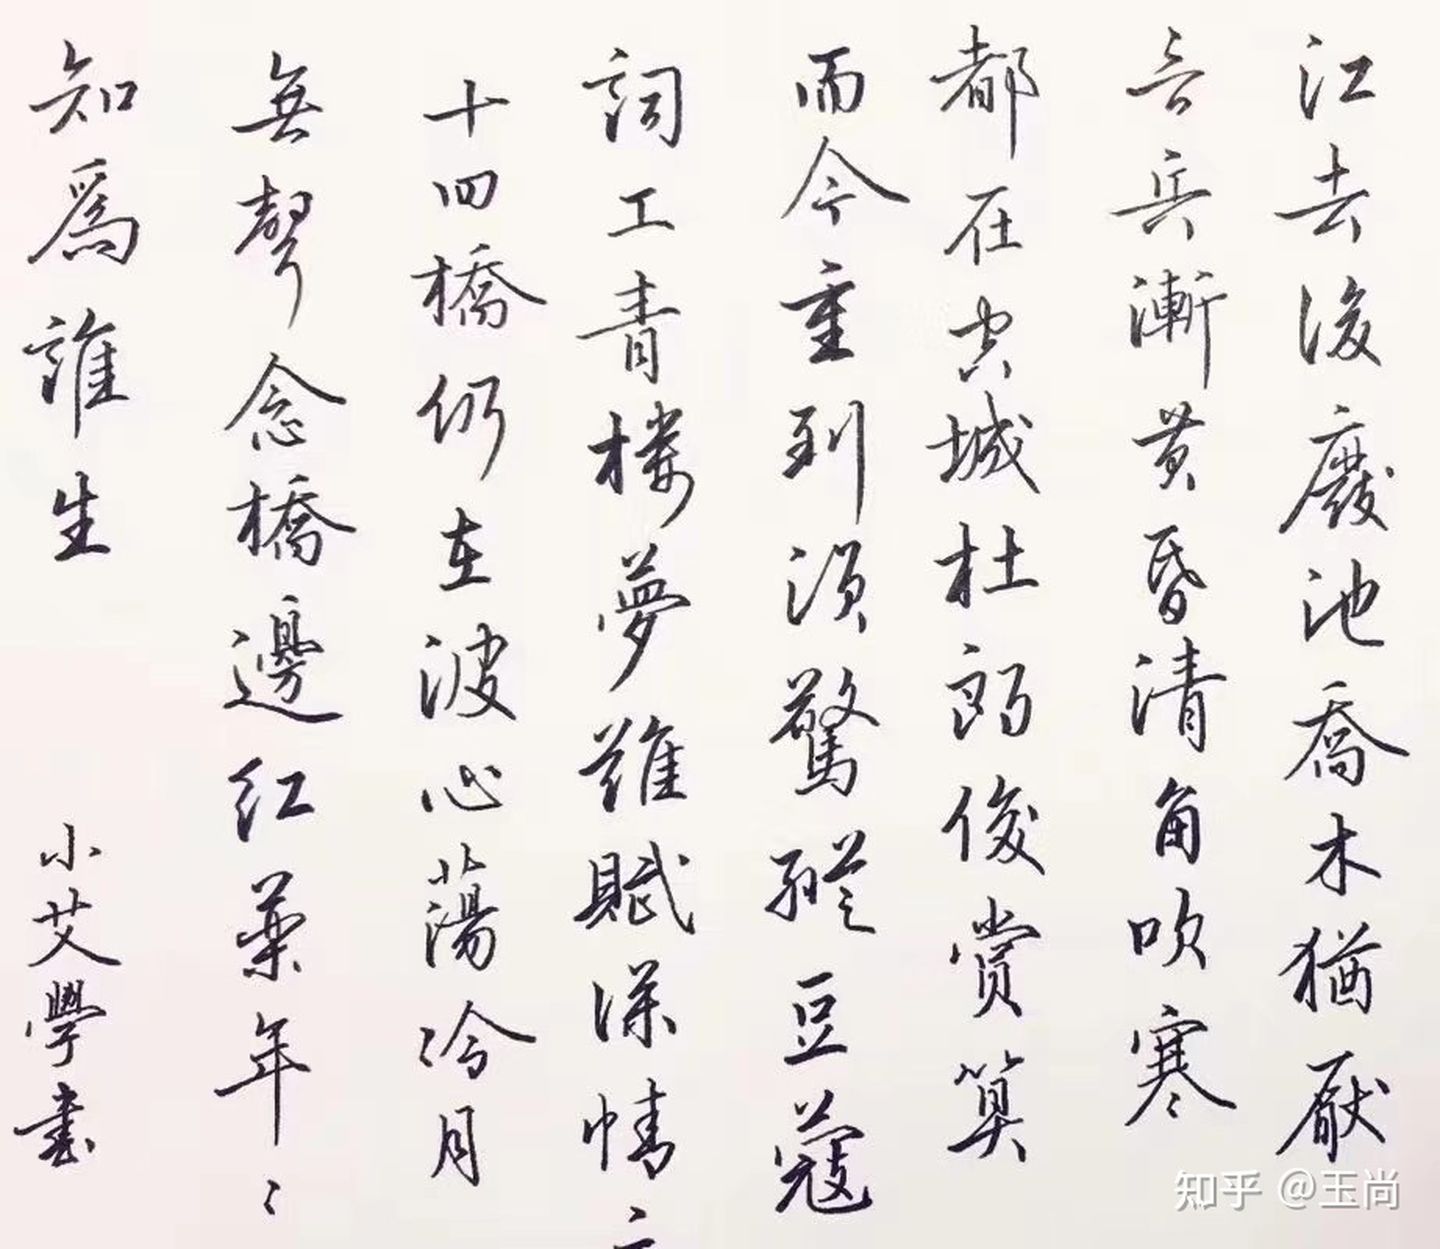 江去後廢池喬木猶厭
言兵漸黄昏清角吹寒
都在空城杜郎俊賞算
而今重到須驚縱豆蔻
詞工青樓夢難賦深情二
十四橋仍在波心蕩冷月
無聲念橋邊紅藥年〻
知爲誰生
小艾學書
知乎 @玉尚